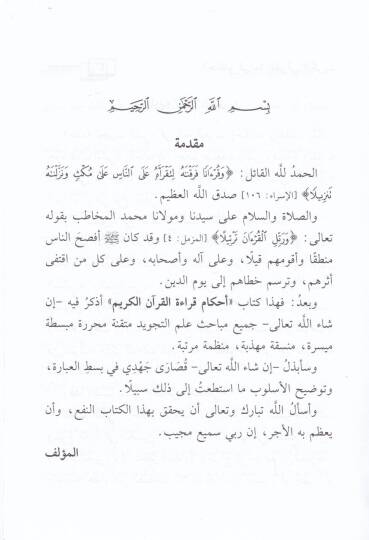 بِسْمِ اللَّهِ الرَّحْمَٰنِ الرَّحِيمِ
مقدمة
الحمدُ للَّه القائل: ﴿وَقُرْءَانًا فَرَقْنَٰهُ لِتَقْرَأَهُۥ عَلَى ٱلنَّاسِ عَلَىٰ مُكْثٍ وَنَزَّلْنَٰهُ
تَنزِيلًا﴾ [الإسراء: ١٠٦] صدق اللَّه العظيم.
والصلاة والسلام على سيدنا ومولانا محمد المخاطب بقوله
تعالى: ﴿وَرَتِّلِ ٱلْقُرْءَانَ تَرْتِيلًا﴾ [المزمل: ٤] وقد كان ﷺ أفصحَ الناس
منطقًا وأقومهم قيلًا، وعلى آله وأصحابه، وعلى كل من اقتفى
أثرهم، وترسم خطاهم إلى يوم الدين.
وبعدُ: فهذا كتاب «أحكام قراءة القرآن الكريم» أذكرُ فيه -إن
شاء اللَّه تعالى- جميع مباحث علم التجويد متقنة محررة مبسطة
ميسرة، منسقة مهذبة، منظمة مرتبة.
وسأبذلُ -إن شاء اللَّه تعالى- قُصَارَى جَهْدِي في بسطِ العبارة،
وتوضيح الأسلوب ما استطعتُ إلى ذلك سبيلًا.
وأسألُ اللَّه تبارك وتعالى أن يحقق بهذا الكتاب النفع، وأن
يعظم به الأجر، إن ربي سميع مجيب.
المؤلف